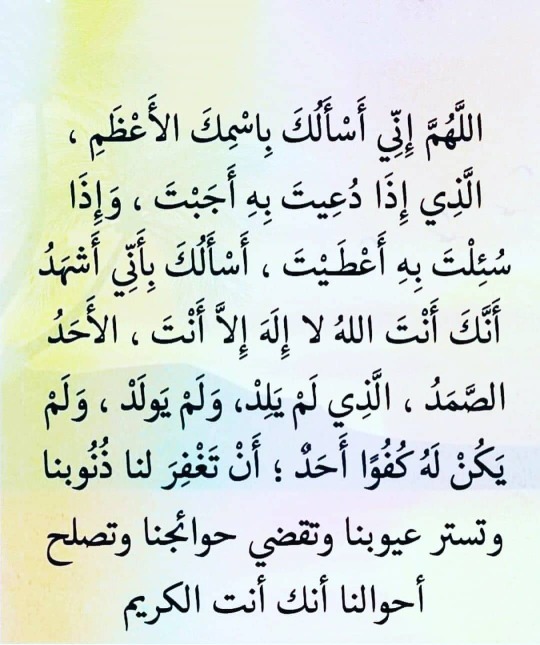 اللَّهُمَّ إِنِّي أَسْأَلُكَ بِاسْمِكَ الأَعْظَمِ ،
الَّذِي إِذَا دُعِيتَ بِهِ أَجَبْتَ ، وَإِذَا
سُئِلْتَ بِهِ أَعْطَـيْتَ ، أَسْأَلُكَ بِأَنِّي أَشْهَدُ
أَنَّكَ أَنْتَ اللهُ لا إِلَهَ إِلاَّ أَنْتَ ، الأَحَدُ
الصَّمَدُ ، الَّذِي لَمْ يَلِدْ، وَلَمْ يَولَدْ ، وَلَمْ
يَكُنْ لَهُ كُفُوًا أَحَدٌ ؛ أَنْ تَغْفِرَ لنا ذُنُوبنا
وتستر عيوبنا وتقضي حوائجنا وتصلح
أحوالنا أنك أنت الكريم